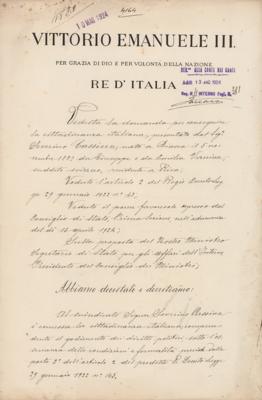 10 MAG 1924
4164
VITTORIO EMANUELE III.
PER GRAZIA DI DIO E PER VOLONTÀ DELLA NAZIONE
RE D'ITALIA
13 MAG 1924
Veduta la domanda per conseguire
la cittadinanza italiana, presentata dal Sig.
Severino
nato a
5 no-
vembre 1893 da Giuseppe e da Emilia
suddito svizzero, residente a
Veduto l'articolo 2 del Regio Decreto Legge
29 gennaio 1922 n° 43;
Veduto il parere favorevole espresso dal
Consiglio di Stato, Prima Sezione nell'adunanza
del dì 16 aprile 1924;
Sulla proposta del Nostro Ministro
Segretario di Stato per gli affari dell'Interno
Presidente del Consiglio dei Ministri;
Abbiamo decretato e decretiamo:
Al suindicato Signor Severino
è concessa la cittadinanza italiana compren-
dente il godimento dei diritti politici sotto l'os-
servanza delle condizioni e formalità
parte 2ª dell'articolo 2 del predetto R. Decreto Legge
29 gennaio 1922 n° 43.